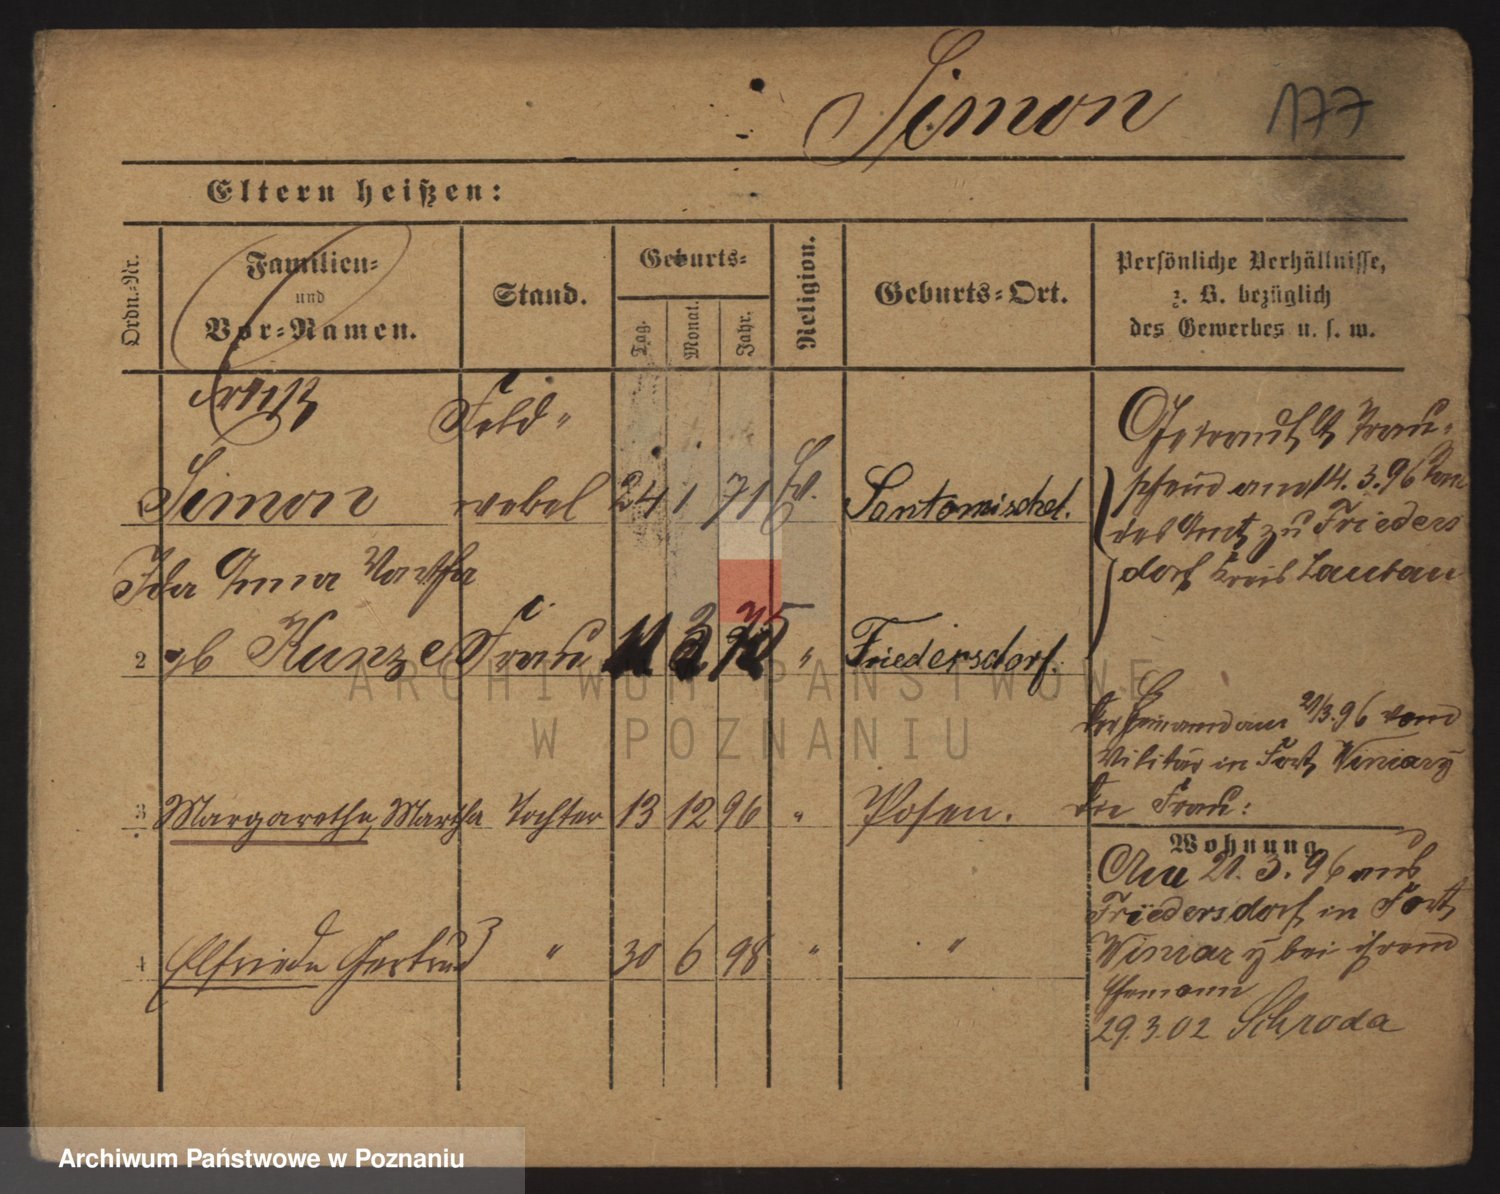 Simon 177
Eltern heißen:
Ordn.-Nr.
Familien-
und
Vor-Namen.
Stand.
Geburts-
Tag.
Monat.
Jahr.
Religion.
Geburts-Ort.
Persönliche Verhältnisse,
z. B. bezüglich
des Gewerbes u. s. w.
Feld-
Simon webel 24 1 71 Ev. Santomischel.
am 14. 3. 96
des Amt zu Frieders
dorf Kreis Lauban
Ida Anna Martha
2 gb Kunze Frau 3 75 " Friedersdorf.
am 21/3. 96 vom
Militär in Fort Winiary
die Frau:
3 Margarethe, Martha Tochter 13 12 96 " Posen.
Wohnung
Am 21. 3. 96 aus
Friedersdorf in Fort
Winiary bei ihrem
Ehemann
4 Elfriede Gertrud " 30 6 98 " "
29. 3. 02 Schroda
ARCHIWUM PAŃSTWOWE
W POZNANIU
Archiwum Państwowe w Poznaniu